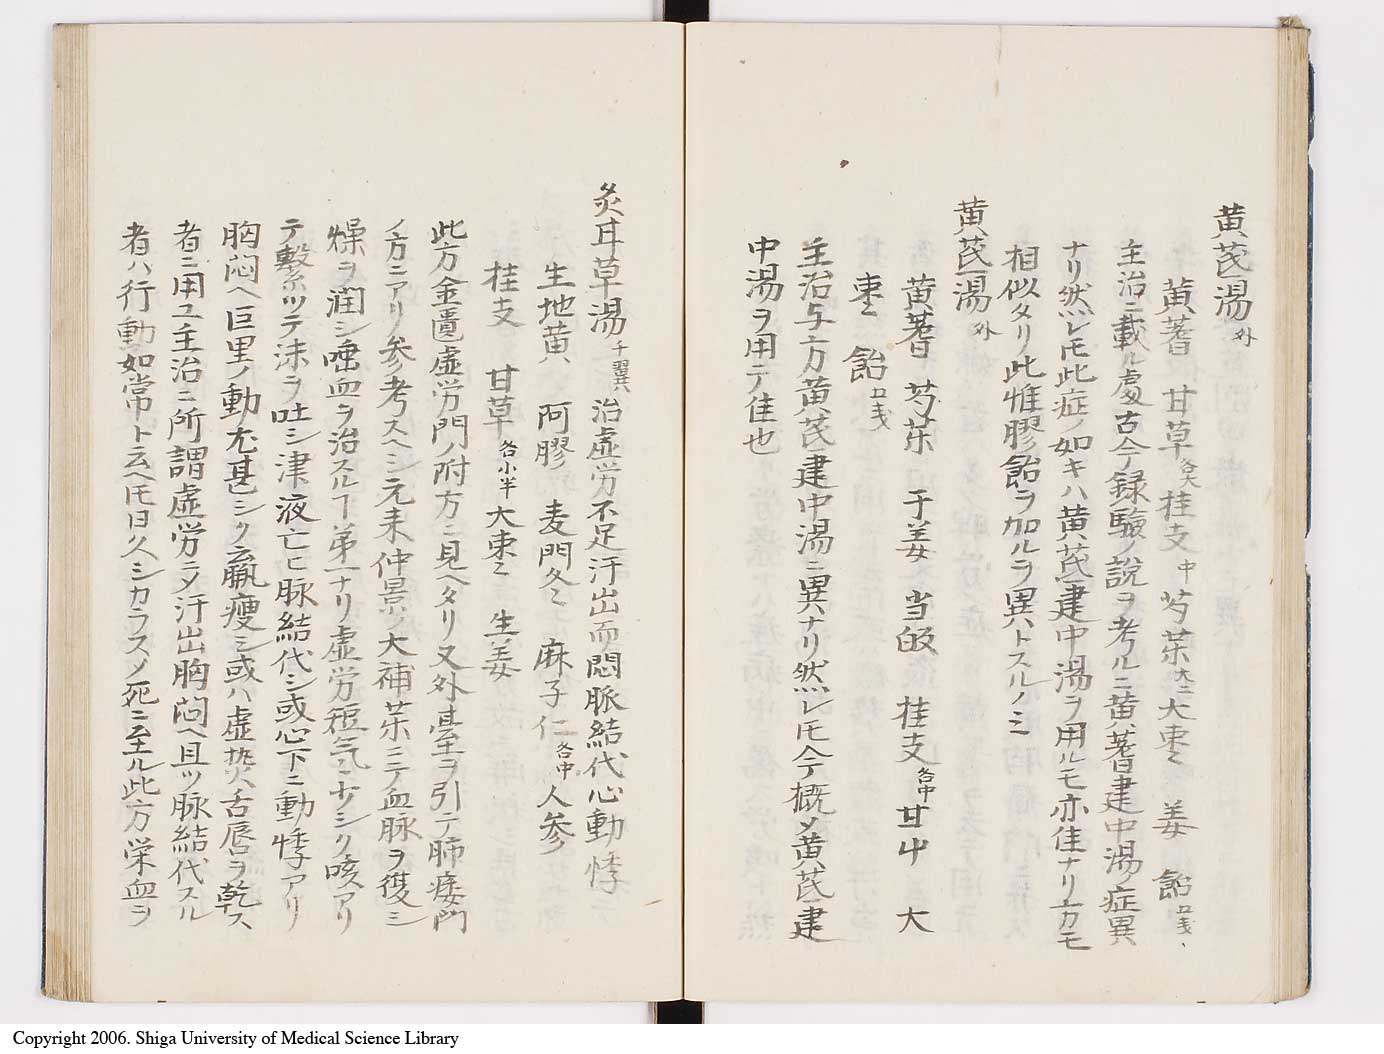 黄芪湯 外
黄蓍 甘草 各大 桂支 中 芍薬 大二 大枣〻 姜 飴 口戋、
主治ニ載ル處古今録驗ノ説ヲ考ルニ黄蓍建中湯ノ症異
ナリ然レ𪜈此症ノ如キハ黄芪建中湯ヲ用ルモ亦佳ナリ方モ
相似タリ此惟膠飴ヲ加ルヲ異トスルノミ
黄芪湯 外
黄蓍 芍薬 干姜 当皈 桂支 各中 甘屮 大
枣〻 飴 口戋
主治与方黄芪建中湯ニ異ナリ然レ𪜈今概〆黄芪建
中湯ヲ用テ佳也
炙耳草湯 千翼 治虚労不足汗出而悶脈結代心動悸
生地黄 阿膠 麦門冬〻 麻子仁 各中 人参
桂支 甘草 各小半 大枣〻 生姜
此方金匱虚労門ノ附方ニ見ヘタリ又外臺ヲ引テ肺痿門
ノ方ニアリ参考スヘシ元来仲景ノ大補薬ニテ血脉ヲ復シ
燥ヲ潤シ唾血ヲ治スルヿ第一ナリ虚労短気ニ少シク咳アリ
テ繋ツテ沫ヲ吐シ津液亡ヒ脉結代シ或心下ニ動悸アリ
胸悶ヘ巨里ノ動尤甚シク羸痩シ或ハ虚熱舌唇ヲ乾ス
者ニ用ユ主治ニ所謂虚労ニ〆汗出胸悶ヘ且ツ脉結代スル
者ハ行動如常ト云ヘ𪜈日久シカラス〆死ニ至ル此方栄血ヲ
Copyright 2006. Shiga University of Medical Science Library